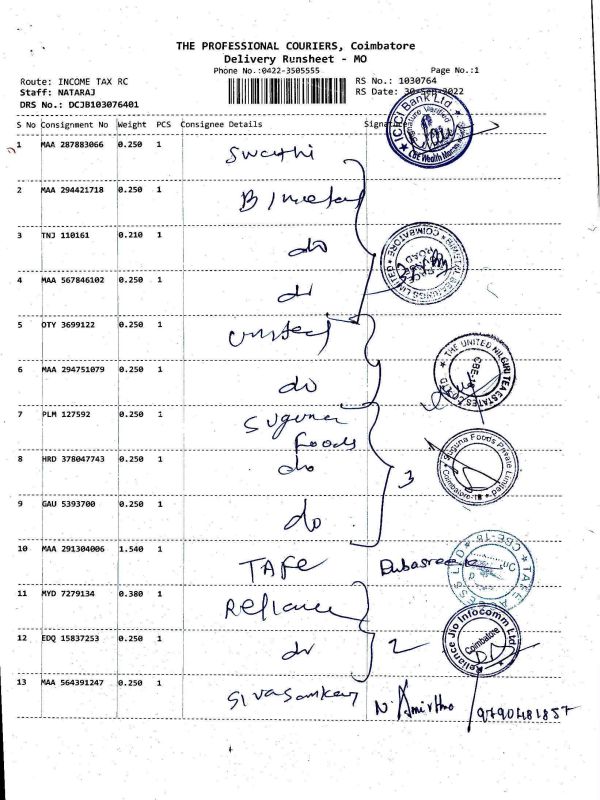 THE PROFESSIONAL COURIERS, Coimbatore
Delivery Runsheet - MO
Phone No.:0422-3505555
Page No.:1
Route: INCOME TAX RC
RS No.: 1030764
Staff: NATARAJ
RS Date: 30-Sep-2022
DRS No.: DCJB103076401
S No Consignment No Weight PCS Consignee Details
ICICI Bank Ltd.
Signature Verified
1 MAA 287883066 0.250 1 Swathi
2 MAA 294421718 0.250 1
3 TNJ 110161 0.210 1 do
BIMETAL BEARINGS LIMITED COIMBATORE
4 MAA 567846102 0.250 1 do
5 OTY 3699122 0.250 1 United
THE UNITED NILGIRI TEA ESTATES CO LTD
CBE-18
6 MAA 294751079 0.250 1 do
7 PLM 127592 0.250 1 Suguna
foods
Suguna Foods Private Limited
Coimbatore-18
8 HRD 378047743 0.250 1 do
3
9 GAU 5393700 0.250 1 do
10 MAA 291304006 1.540 1 TAFE
CBE-18
11 MYD 7279134 0.380 1 Reliance
Reliance Jio Infocomm Ltd
Coimbatore
12 EDQ 15837253 0.250 1 do 2
13 MAA 564391247 0.250 1 Sivasankar N. Amirtha